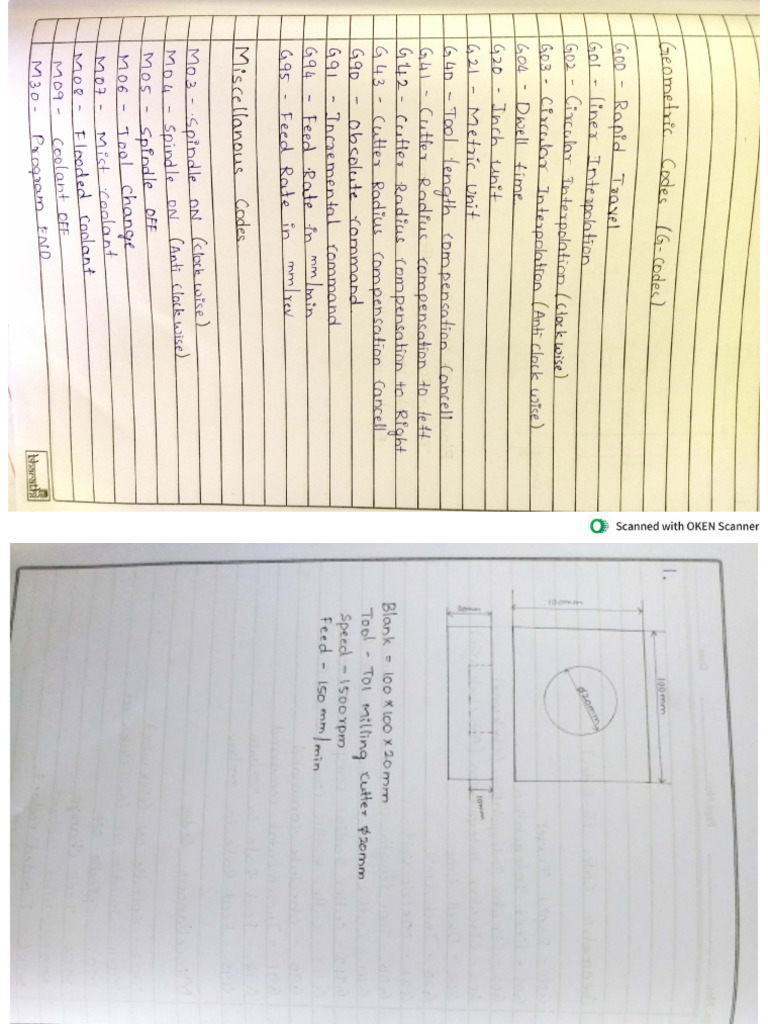 Geometric Codes (G-codes)
G00 - Rapid Travel
G01 - liner Interpolation
G02 - Circular Interpolation (Clock wise)
G03 - Circular Interpolation (Anti clock wise)
G04 - Dwell time
G20 - Inch unit
G21 - Metric Unit
G40 - Tool length compensation Cancell
G41 - Cutter Radius compensation to left
G42 - Cutter Radius Compensation to Right
G43 - Cutter Radius Compensation Cancell
G90 - Obsolute Command
G91 - Incremental command
G94 - Feed Rate in mm/min
G95 - Feed Rate in mm/rev
Miscellanous Codes
M03 - Spindle ON (Clock wise)
M04 - Spindle ON (Anti Clock wise)
M05 - Spindle OFF
M06 - Tool Change
M07 - Mist Coolant
M08 - Flooded Coolant
M09 - Coolant OFF
M30 - Program END
bharath
Scanned with OKEN Scanner
1.
100mm
100mm
ø20mm
20mm
10mm
Blank = 100 x 100 x 20mm
Tool - T01 Milling Cutter ø20mm
Speed - 1500rpm
Feed - 150 mm/min